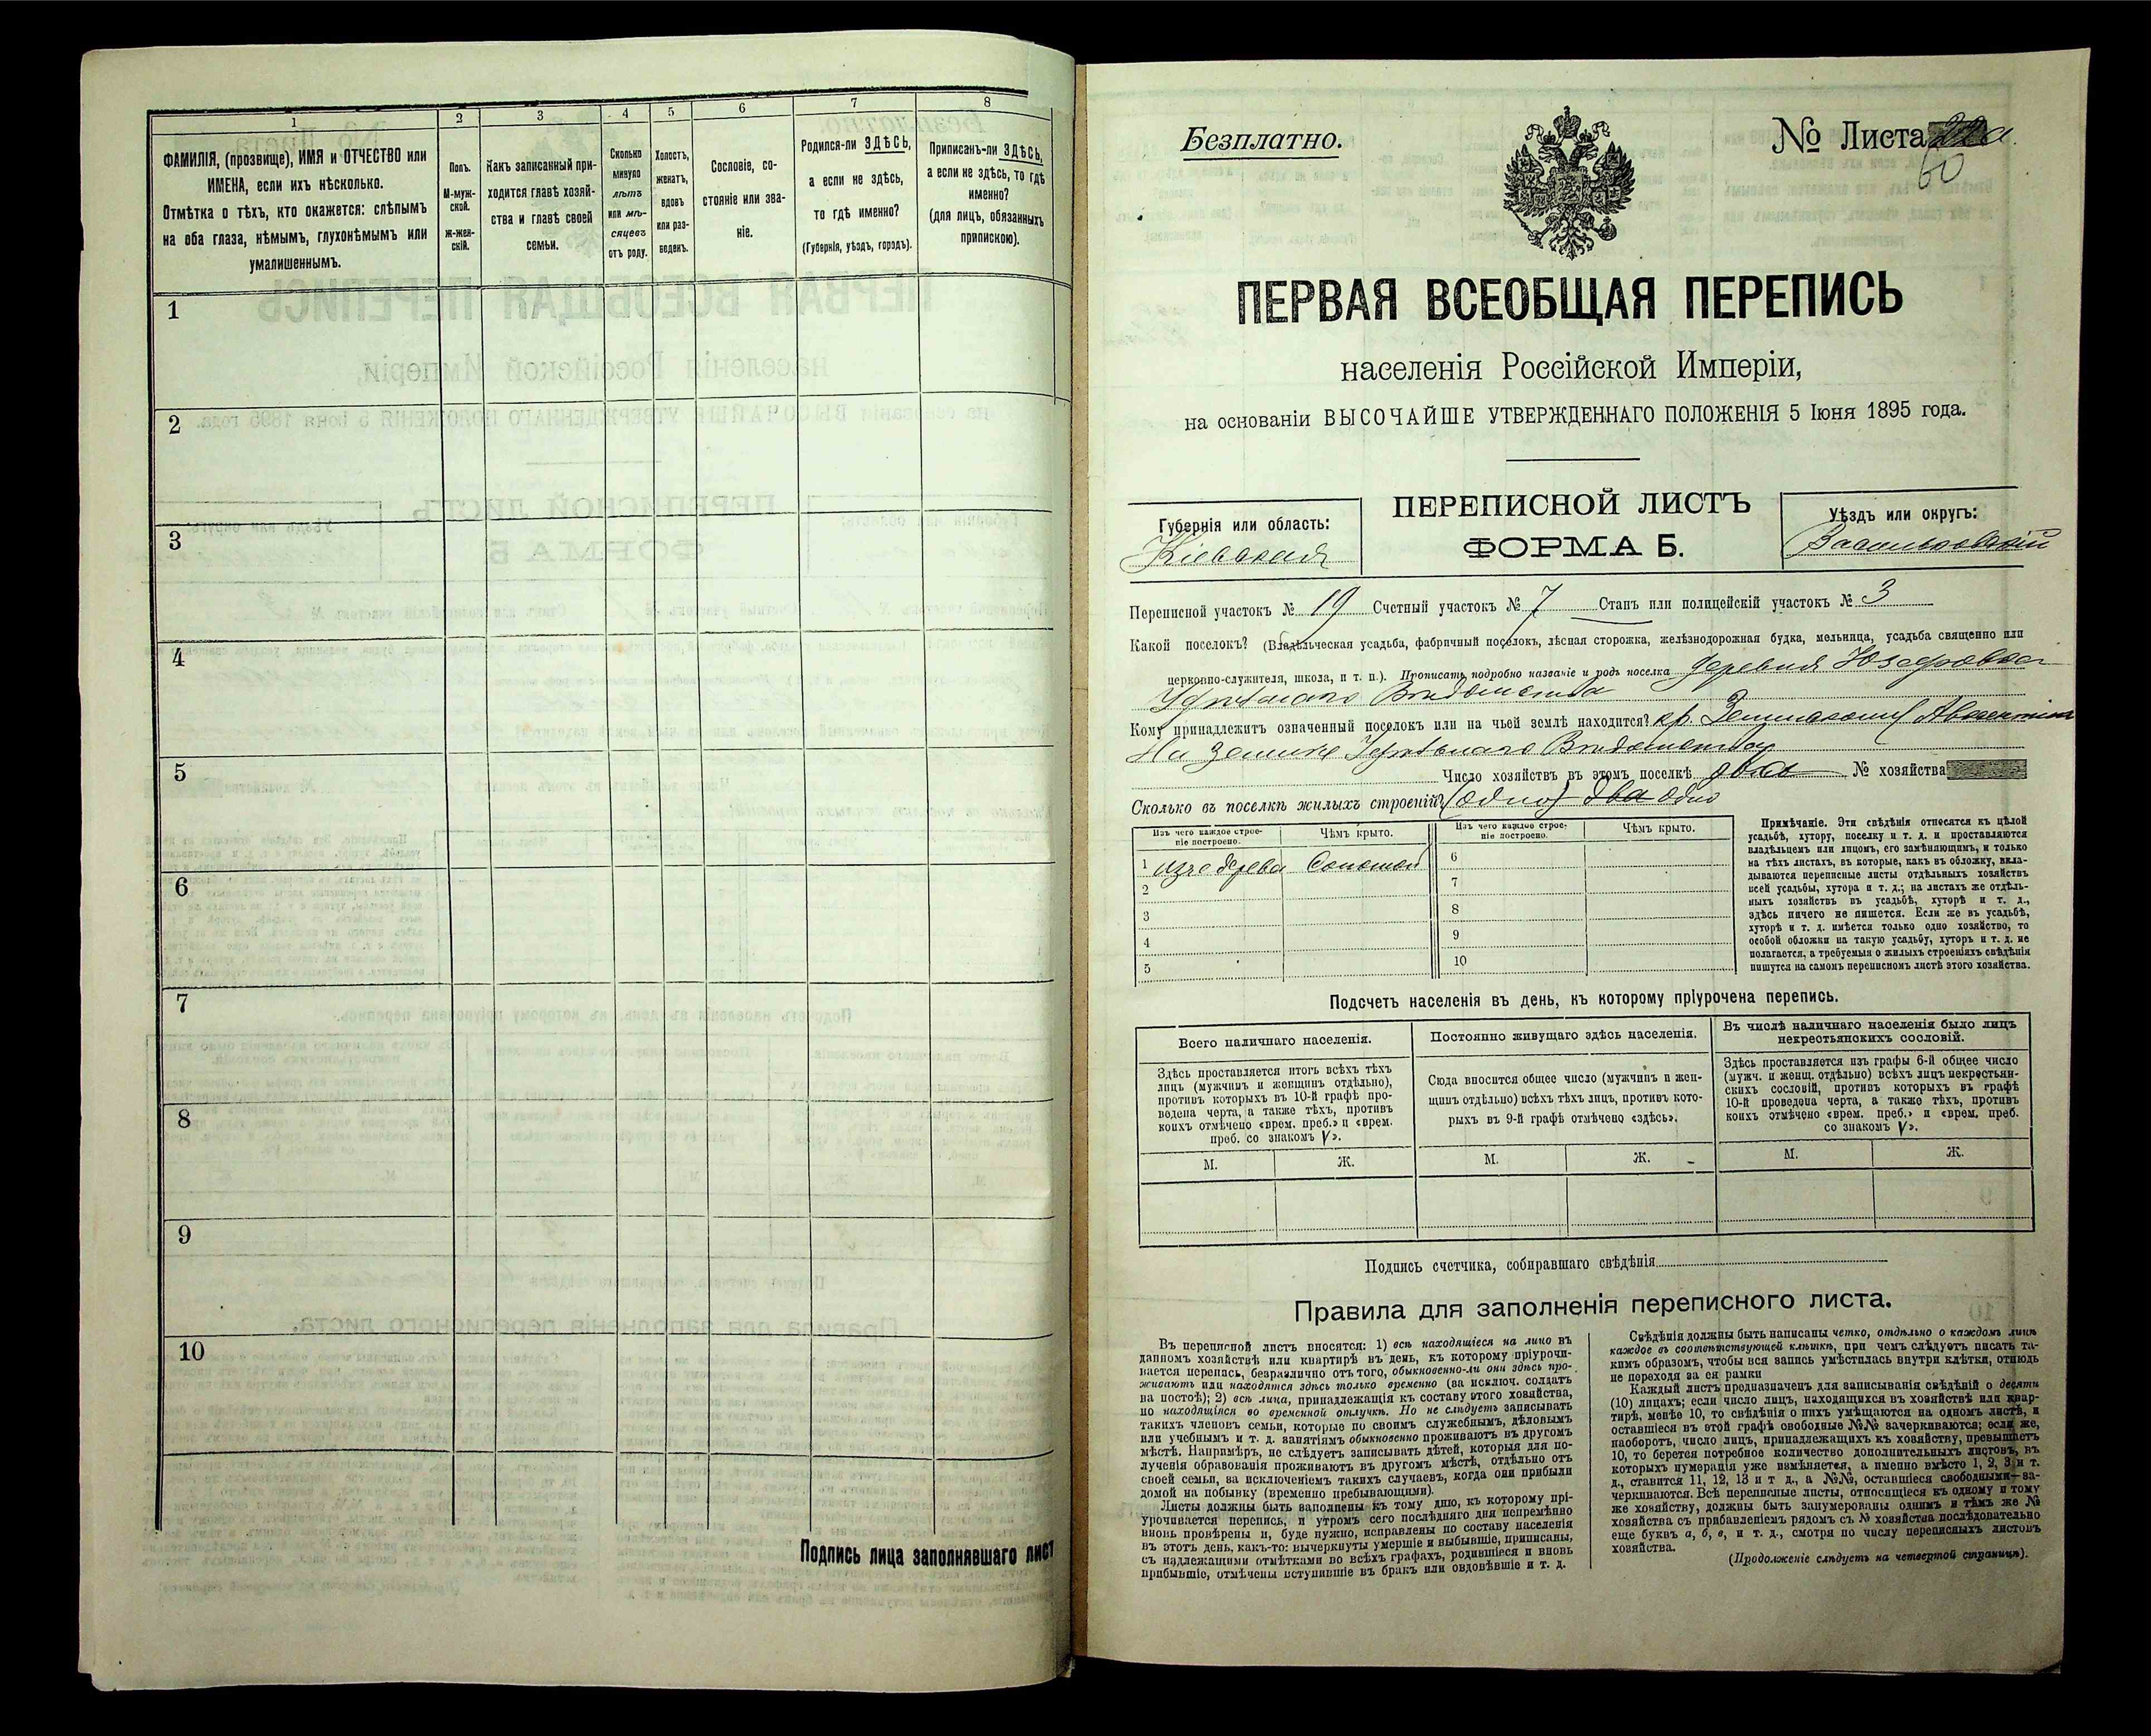 1
2
3
4
5
6
7
8
ФАМИЛІЯ, (прозвище), ИМЯ и ОТЧЕСТВО или
ИМЕНА, если ихъ нѣсколько.
Отмѣтка о тѣхъ, кто окажется: слѣпымъ
на оба глаза, нѣмымъ, глухонѣмымъ или
умалишеннымъ.
Полъ.
М-муж-
ской.
Ж-жен-
скій.
Какъ записанный при-
ходится главѣ хозяй-
ства и главѣ своей
семьи.
Сколько
минуло
лѣтъ
или мѣ-
сяцевъ
отъ роду.
Холостъ,
женатъ,
вдовъ
или раз-
веденъ.
Сословіе, со-
стояніе или зва-
ніе.
Родился-ли ЗДѢСЬ,
а если не здѣсь,
то гдѣ именно?
(Губернія, уѣздъ, городъ).
Приписанъ-ли ЗДѢСЬ,
а если не здѣсь, то гдѣ
именно?
(для лицъ, обязанныхъ
припискою).
1
2
3
4
5
6
7
8
9
10
Подпись лица заполнявшаго лист
Безплатно.
№ Листа
60
ПЕРВАЯ ВСЕОБЩАЯ ПЕРЕПИСЬ
населенія Россійской Имперіи,
на основаніи ВЫСОЧАЙШЕ УТВЕРЖДЕННАГО ПОЛОЖЕНІЯ 5 Іюня 1895 года.
Губернія или область:
Кіевская
ПЕРЕПИСНОЙ ЛИСТЪ
ФОРМА Б.
Уѣздъ или округъ:
Васильковскій
Переписной участокъ № 19 Счетный участокъ № 7 Станъ или полицейскій участокъ № 3
Какой поселокъ? (Владѣльческая усадьба, фабричный поселокъ, лѣсная сторожка, желѣзнодорожная будка, мельница, усадьба священно или
церковно-служителя, школа, и т. п.). Прописать подробно названіе и родъ поселка деревня Юзефовка
Вѣдомства
Кому принадлежитъ означенный поселокъ или на чьей землѣ находится? кр.
На землѣ Вѣдомства
Число хозяйствъ въ этомъ поселкѣ два № хозяйства
Сколько въ поселкѣ жилыхъ строеній? (одно) два одно
Изъ чего каждое строе-
ніе построено.
Чѣмъ крыто.
Изъ чего каждое строе-
ніе построено.
Чѣмъ крыто.
1 изъ дерева Соломой
2
3
4
5
6
7
8
9
10
Примѣчаніе. Эти свѣдѣнія относятся къ цѣлой
усадьбѣ, хутору, поселку и т. д. и проставляются
владѣльцемъ или лицомъ, его замѣняющимъ, и только
на тѣхъ листахъ, въ которые, какъ въ обложку, вкла-
дываются переписные листы отдѣльныхъ хозяйствъ
всей усадьбы, хутора и т. д.; на листахъ же отдѣль-
ныхъ хозяйствъ въ усадьбѣ, хуторѣ и т. д.,
здѣсь ничего не пишется. Если же въ усадьбѣ,
хуторѣ и т. д. имѣется только одно хозяйство, то
особой обложки на такую усадьбу, хуторъ и т. д. не
полагается, а требуемыя о жилыхъ строеніяхъ свѣдѣнія
пишутся на самомъ переписномъ листѣ этого хозяйства.
Подсчетъ населенія въ день, къ которому пріурочена перепись.
Всего наличнаго населенія.
Постоянно живущаго здѣсь населенія.
Въ числѣ наличнаго населенія было лицъ
некрестьянскихъ сословій.
Здѣсь проставляется итогъ всѣхъ тѣхъ
лицъ (мужчинъ и женщинъ отдѣльно),
противъ которыхъ въ 10-й графѣ про-
ведена черта, а также тѣхъ, противъ
коихъ отмѣчено «врем. преб.» и «врем.
преб. со знакомъ V».
Сюда вносится общее число (мужчинъ и жен-
щинъ отдѣльно) всѣхъ тѣхъ лицъ, противъ кото-
рыхъ въ 9-й графѣ отмѣчено «здѣсь».
Здѣсь проставляется изъ графы 6-й общее число
(мужч. и женщ. отдѣльно) всѣхъ лицъ некрестьян-
скихъ сословій, противъ которыхъ въ графѣ
10-й проведена черта, а также тѣхъ, противъ
коихъ отмѣчено «врем. преб.» и «врем. преб.
со знакомъ V».
М.
Ж.
М.
Ж.
М.
Ж.
Подпись счетчика, собиравшаго свѣдѣнія
Правила для заполненія переписного листа.
Въ переписной листъ вносятся: 1) всѣ находящіеся на лицо въ
данномъ хозяйствѣ или квартирѣ въ день, къ которому пріурочи-
вается перепись, безразлично отъ того, обыкновенно-ли они здѣсь про-
живаютъ или находятся здѣсь только временно (за исключ. солдатъ
на постоѣ); 2) всѣ лица, принадлежащія къ составу этого хозяйства,
но находящіяся во временной отлучкѣ. Но не слѣдуетъ записывать
такихъ членовъ семьи, которые по своимъ служебнымъ, дѣловымъ
или учебнымъ и т. д. занятіямъ обыкновенно проживаютъ въ другомъ
мѣстѣ. Напримѣръ, не слѣдуетъ записывать дѣтей, которыя для по-
лученія образованія проживаютъ въ другомъ мѣстѣ, отдѣльно отъ
своей семьи, за исключеніемъ такихъ случаевъ, когда они прибыли
домой на побывку (временно пребывающими).
Листы должны быть заполнены къ тому дню, къ которому прі-
урочивается перепись, и утромъ сего послѣдняго дня непремѣнно
вновь провѣрены и, буде нужно, исправлены по составу населенія
въ этотъ день, какъ-то: вычеркнуты умершіе и выбывшіе, приписаны,
съ надлежащими отмѣтками во всѣхъ графахъ, родившіеся и вновь
прибывшіе, отмѣчены вступившіе въ бракъ или овдовѣвшіе и т. д.
Свѣдѣнія должны быть написаны четко, отдѣльно о каждомъ лицѣ
каждое въ соотвѣтствующей клѣткѣ, при чемъ слѣдуетъ писать та-
кимъ образомъ, чтобы вся запись умѣстилась внутри клѣтки, отнюдь
не переходя за ея рамки
Каждый листъ предназначенъ для записыванія свѣдѣній о десяти
(10) лицахъ; если число лицъ, находящихся въ хозяйствѣ или квар-
тирѣ, менѣе 10, то свѣдѣнія о нихъ умѣщаются на одномъ листѣ, и
оставшіеся въ этой графѣ свободные №№ зачеркиваются; если же,
наоборотъ, число лицъ, принадлежащихъ къ хозяйству, превышаетъ
10, то берется потребное количество дополнительныхъ листовъ, въ
которыхъ нумерація уже измѣняется, а именно вмѣсто 1, 2, 3 и т.
д., ставится 11, 12, 13 и т д., а №№, оставшіеся свободными—за-
черкиваются. Всѣ переписные листы, относящіеся къ одному и тому
же хозяйству, должны быть занумерованы однимъ и тѣмъ же №
хозяйства съ прибавленіемъ рядомъ съ № хозяйства послѣдовательно
еще буквъ а, б, в, и т. д., смотря по числу переписныхъ листовъ
хозяйства.
(Продолженіе слѣдуетъ на четвертой страницѣ).